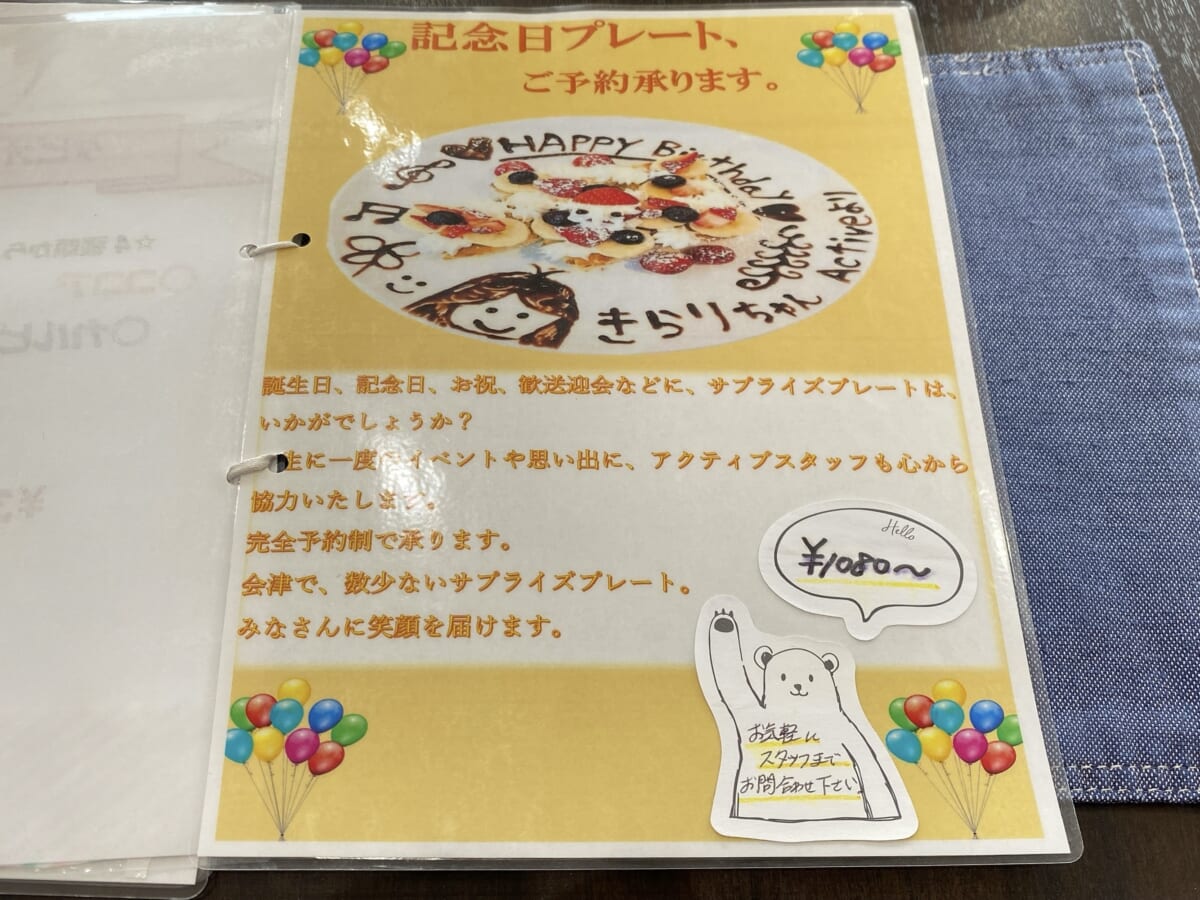 記念日プレート、
ご予約承ります。
HAPPY Birthday
Activeより
きらりちゃん
誕生日、記念日、お祝、歓送迎会などに、サプライズプレートは、
いかがでしょうか？
生に一度 イベントや思い出に、アクティブスタッフも心から
協力いたします。
完全予約制で承ります。
会津で、数少ないサプライズプレート。
みなさんに笑顔を届けます。
Hello
¥1080～
お気軽に
スタッフまで
お問合わせ下さい
☆4種類から